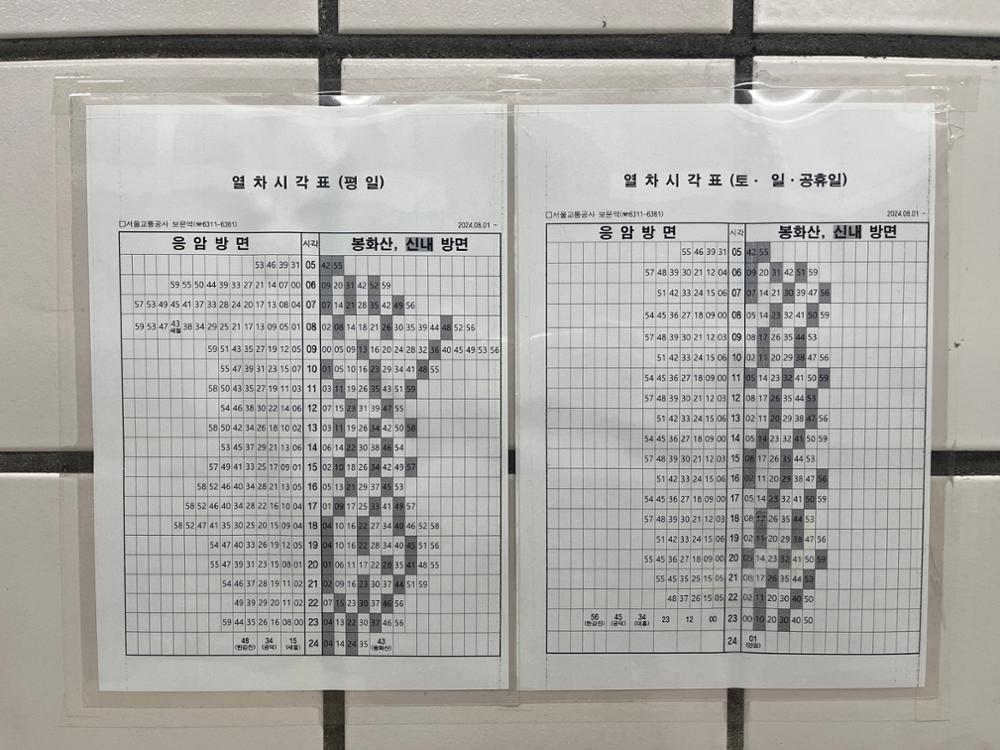 열 차 시 각 표 (평 일)
□서울교통공사 보문역(☎6311-6361) 2024.08.01 ~
응 암 방 면 시각 봉화산, 신내 방면
53 46 39 31 05 42 55
59 55 50 44 39 33 27 21 14 07 00 06 09 20 31 42 52 59
57 53 49 45 41 37 33 28 24 20 17 13 08 04 07 07 14 21 28 35 42 49 56
59 53 47 43 38 34 29 25 21 17 13 09 05 01 08 02 08 14 18 21 26 30 35 39 44 48 52 56
59 51 43 35 27 19 12 05 09 00 05 09 13 16 20 24 28 32 36 40 45 49 53 56
55 47 39 31 23 15 07 10 01 05 10 16 23 29 34 41 48 55
58 50 43 35 27 19 11 03 11 03 11 19 26 35 43 51 59
54 46 38 30 22 14 06 12 07 15 23 31 39 47 55
58 50 42 34 26 18 10 02 13 03 11 19 26 34 42 50 58
53 45 37 29 21 13 06 14 06 14 22 30 38 46 54
57 49 41 33 25 17 09 01 15 02 10 18 26 34 42 49 57
58 52 46 40 34 28 21 13 05 16 05 13 21 29 37 45 53
58 52 46 40 34 28 22 16 10 04 17 01 09 17 25 33 41 49 57
58 52 47 41 35 30 25 20 15 09 04 18 04 10 16 22 27 34 40 46 52 58
54 47 40 33 26 19 12 05 19 04 10 16 22 28 34 40 45 51 56
55 47 39 31 23 15 08 01 20 01 06 11 17 22 28 35 41 48 55
54 46 37 28 19 11 02 21 02 09 16 23 30 37 44 51 59
49 39 29 20 11 02 22 07 15 23 30 37 46 56
59 44 35 26 16 08 00 23 04 13 22 30 37 46 56
48 34 15 24 04 14 24 35 43
(한강진) (공덕) (새절) (봉화산)
열 차 시 각 표 (토 · 일 · 공휴일)
□서울교통공사 보문역(☎6311-6361) 2024.08.01 ~
응 암 방 면 시각 봉화산, 신내 방면
55 46 39 31 05 42 55
57 48 39 30 21 12 04 06 09 20 31 42 51 59
51 42 33 24 15 06 07 07 14 21 30 39 47 56
54 45 36 27 18 09 00 08 05 14 23 32 41 50 59
57 48 39 30 21 12 03 09 08 17 26 35 44 53
51 42 33 24 15 06 10 02 11 20 29 38 47 56
54 45 36 27 18 09 00 11 05 14 23 32 41 50 59
57 48 39 30 21 12 03 12 08 17 26 35 44 53
51 42 33 24 15 06 13 02 11 20 29 38 47 56
54 45 36 27 18 09 00 14 05 14 23 32 41 50 59
57 48 39 30 21 12 03 15 08 17 26 35 44 53
51 42 33 24 15 06 16 02 11 20 29 38 47 56
54 45 36 27 18 09 00 17 05 14 23 32 41 50 59
57 48 39 30 21 12 03 18 08 17 26 35 44 53
51 42 33 24 15 06 19 02 11 20 29 38 47 56
55 45 36 27 18 09 00 20 05 14 23 32 41 50 59
55 45 35 25 15 05 21 08 17 26 35 44 53
48 37 26 15 05 22 02 11 20 30 40 50
56 45 34 23 12 00 23 00 10 20 30 40 50
(한강진) (공덕) (대흥)
24 01